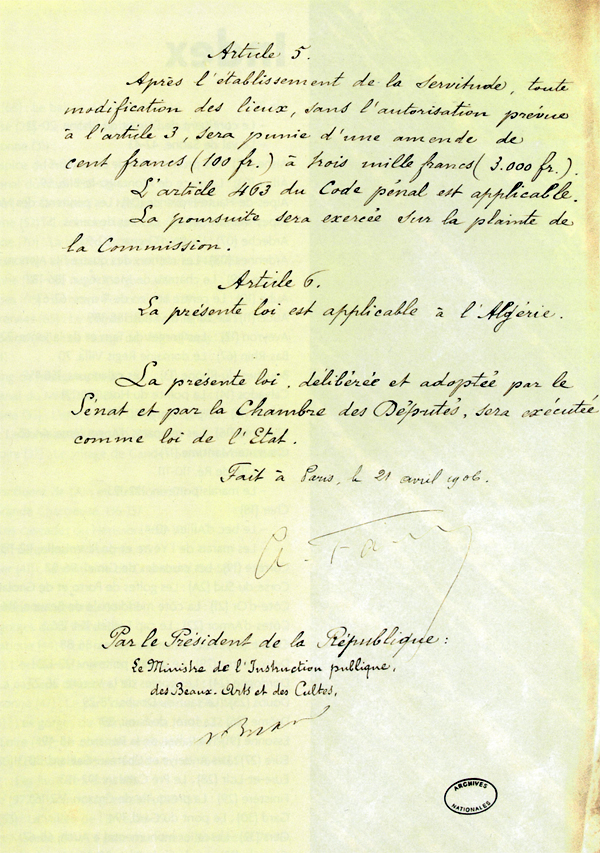 Article 5.
Après l'établissement de la servitude, toute
modification des lieux, sans l'autorisation prévue
à l'article 3, sera punie d'une amende de
cent francs (100 fr.) à trois mille francs (3.000 fr.).
L'article 463 du Code pénal est applicable.
La poursuite sera exercée sur la plainte de
la Commission.
Article 6.
La présente loi est applicable à l'Algérie.
La présente loi, délibérée et adoptée par le
Sénat et par la Chambre des Députés, sera exécutée
comme loi de l'Etat.
Fait à Paris, le 21 avril 1906.
Par le Président de la République:
Le Ministre de l'Instruction publique,
des Beaux-Arts et des Cultes,
ARCHIVES
NATIONALES